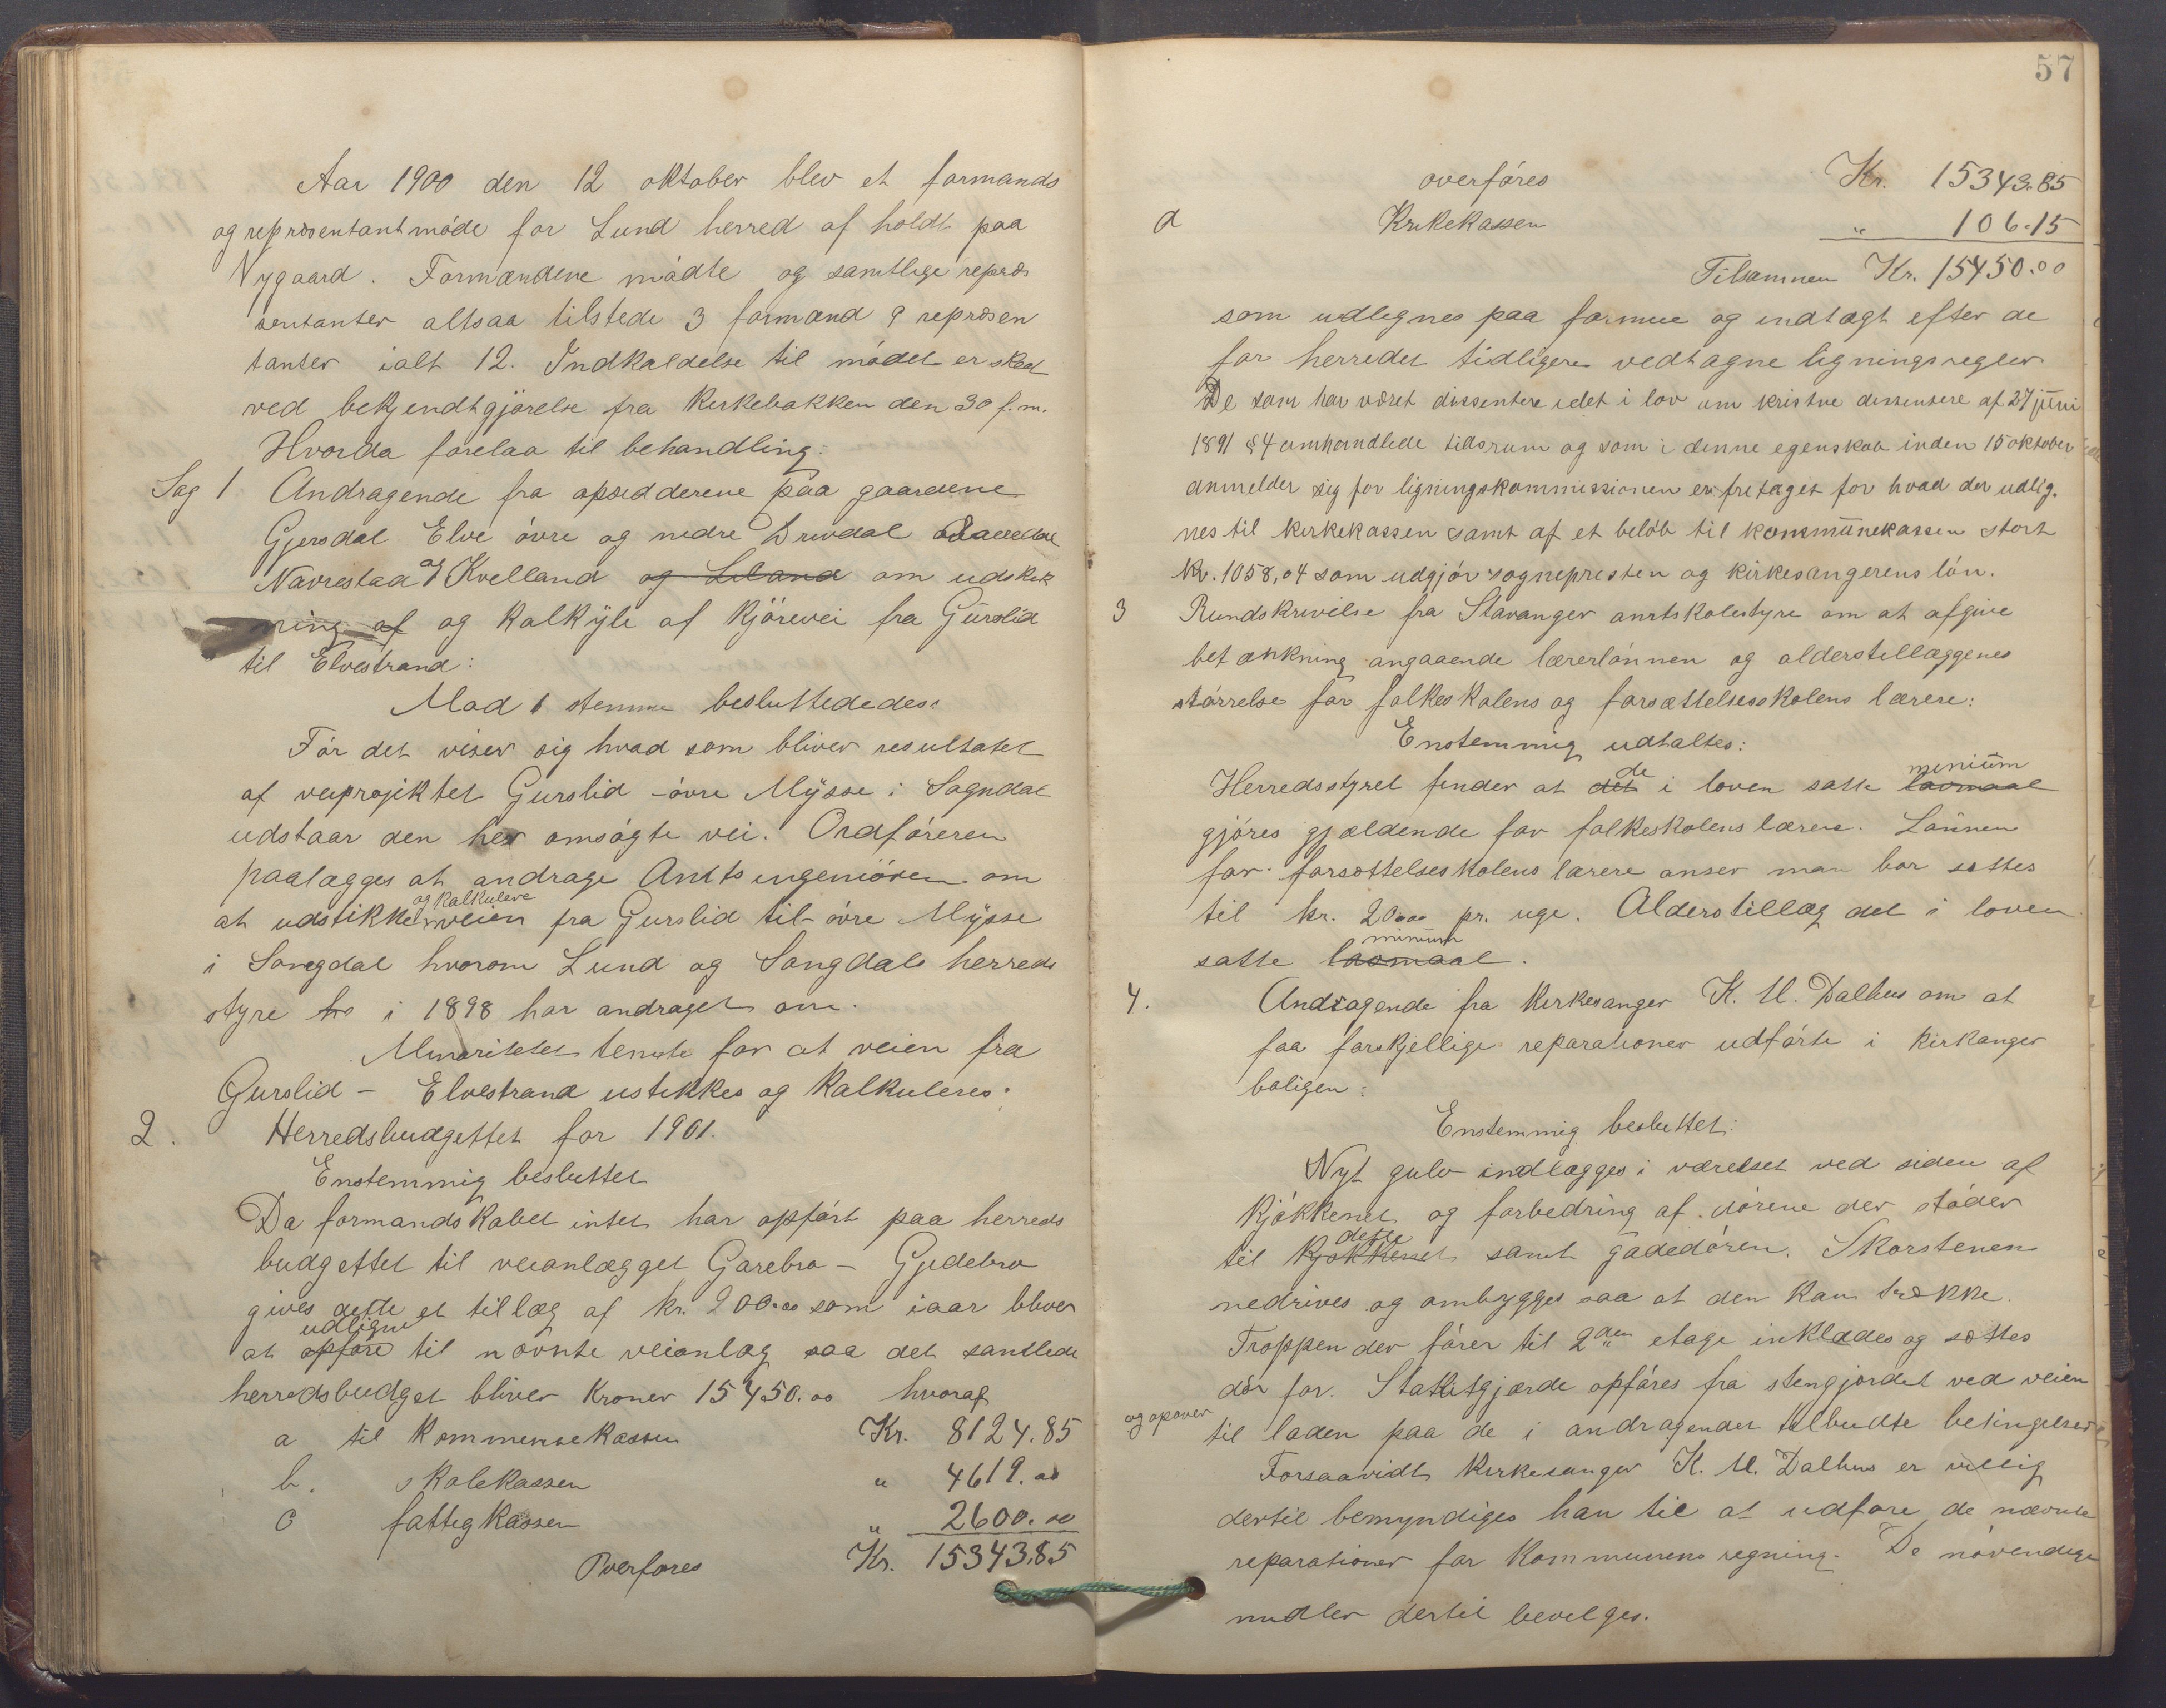 Aar 1900 den 12 oktober blev et formands
og repræsentantmöde for Lund herred af holdt paa
Nygaard. Formændene mödte og samtlige repræ
sentanter altsaa tilstede 3 formænd 9 repræsen
tanter ialt 12. Indkaldelse til mödet er sked
ved bekjendtgjörelse fra Kirkebakken den 30 f.m.
Hvorda forelaa til behandling:
Sag 1 Andragende fra opsidderene paa gaardene
Gjersdal Elve övre og nedre Drivdal
Navrestad og Kvelland og Liland om udstik
ning af og kalkyle af kjörevei fra Gurslid
til Elvestrand:
Mod 1 stemme besluttededes:
För det viser sig hvad som bliver resultatet
af veiprojektet Gurslid - övre Mysse i Sogndal
udstaar den her omsögte vei. Ordföreren
paalægges at andrage Amtsingeniören om
og kalkulere
at udstikke veien fra Gurslid til övre Mysse
i Songdal hvorom Lund og Songdals herreds
styre i 1898 har andraget om.
Minoritetet stemte for at veien fra
Gurslid - Elvestrand ustikkes og kalkuleres.
2. Herredsbudgettet for 1901.
Enstemmig besluttet
Da formandskabet intet har opfört paa herreds
budgettet til veianlægget Garebro - Gjedebro
gives dette et tillæg af kr. 200.00 som iaar bliver
udligne
at opföre til nævnte veianlæg saa det samlede
herredsbudget bliver Kroner 15450.00 hvoraf
a til Kommunekassen Kr. 8124.85
b. skolekassen " 4619.00
c fattigkassen " 2600.00
Overföres Kr. 15343.85
57
overföres Kr. 15343.85
d Kirkekassen " 106.15
Tilsammen Kr. 15450.00
som udlignes paa formue og indtægt efter de
for herredet tidligere vedtagne ligningsregler
De som har været dissentere idet i lov om kristne dissentere af 27 juni
1891 § 4 omhandlede tidsrum og som i denne egenskab inden 15 oktober
anmelder sig for ligningskommissionen er fritaget for hvad der udlig.
nes til kirkekassen samt af et belöb til kommunekassen stort
kr. 1058,04 som udgjör sognepresten og kirkesangerens lön.
3 Rundskrivelse fra Stavanger amtskolestyre om at afgive
betænkning angaaende lærerlönnen og alderstillæggenes
störrelse for folkeskolens og forsættelsesskolens lærere:
Enstemmig udtaltes:
de minium
Herredsstyret finder at det i loven satte lavmaal
gjöres gjældende for folkeskolens lærere. Lönnen
for forsættelseskolens lærere anser man bör sættes
til kr. 20.00 pr. uge. Alderstillæg det i loven
minium
satte lavmaal.
4. Andragende fra kirkesanger K. M. Dalhus om at
faa forskjellige reparationer udförte i kirkanger
boligen:
Enstemmig besluttet:
Nyt gulv indlægges i værelset ved siden af
kjökkenet og forbedring af dörene der stöder
dette
til kjökkenet samt gadedören. Skorstenen
nedrives og ombygges saa at den kan trække.
Troppen der förer til 2den etage inklædes og sættes
dör for. Stakitgjærde opföres fra stengjærdet ved veien
og opover
til laden paa de i andragendet tilbudte betingelser
Forsaavidt kirkesanger K. M. Dalhus er villig
dertil bemyndiges han til at udföre de nævnte
reparationer for Kommunens regning. De növendige
midler dertil bevilges.